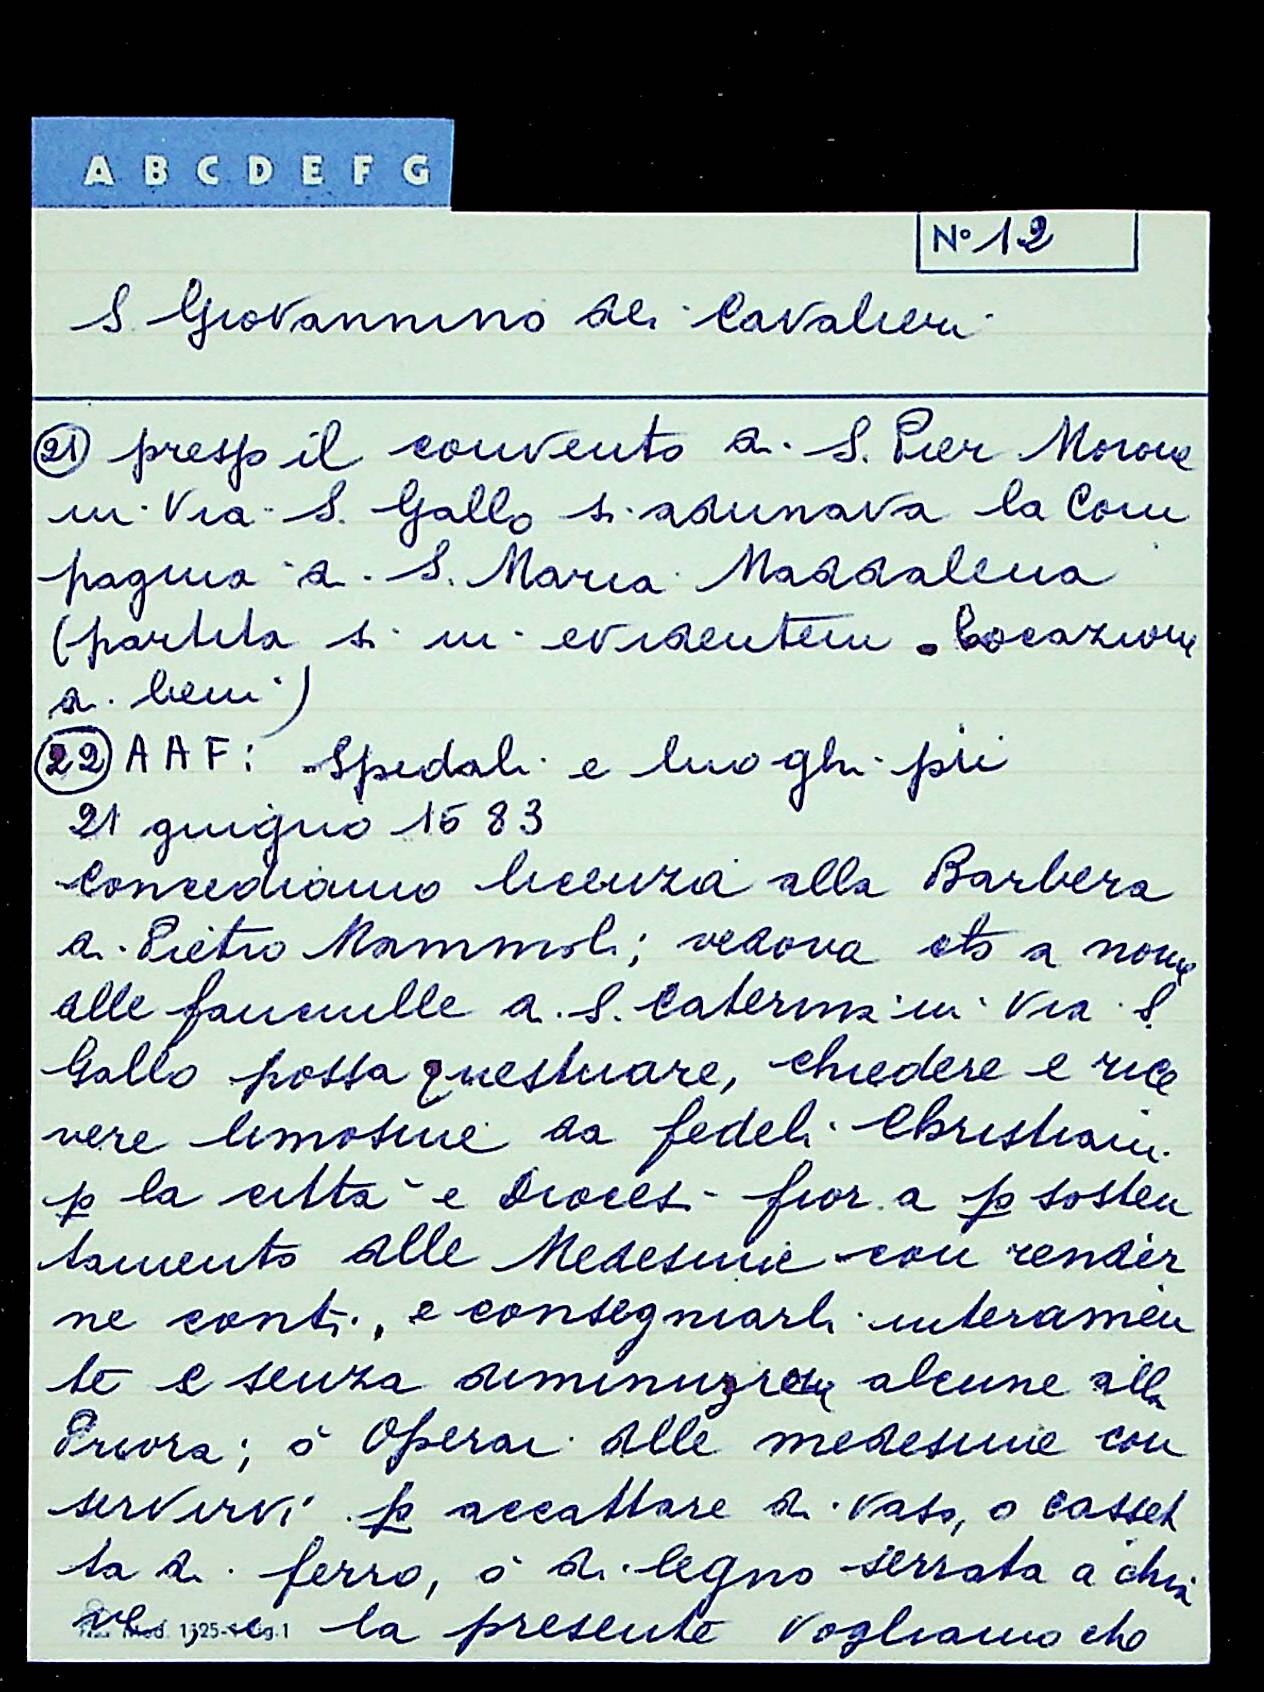 A B C D E F G
N° 12
S. Giovannino dei Cavalieri
(21) presso il convento di S. Pier Morone
in Via S. Gallo si adunava la Com
pagnia di S. Maria Maddalena
(partita si in evidentem Locazione
di beni)
(22) A A F: Spedali e luoghi pii
21 giugno 1683
Concediamo licenza alla Barbera
di Pietro Mammoli; vedova etc a nome
delle fanciulle di S. Caterina in Via S.
Gallo possa questuare, chiedere e rice
vere limosine da fedeli Christiani
p la città e Diocesi fior.a p sosten
tamento delle Medesime con render
ne conti, e consegniarli interamen
te e senza diminuzione alcune alla
Priora; ò Operai delle medesime con
servirvi p accattare di vaso, o casset
ta di ferro, ò di legno serrata a chia
ve, e la presente vogliamo che
Mod. 1325-